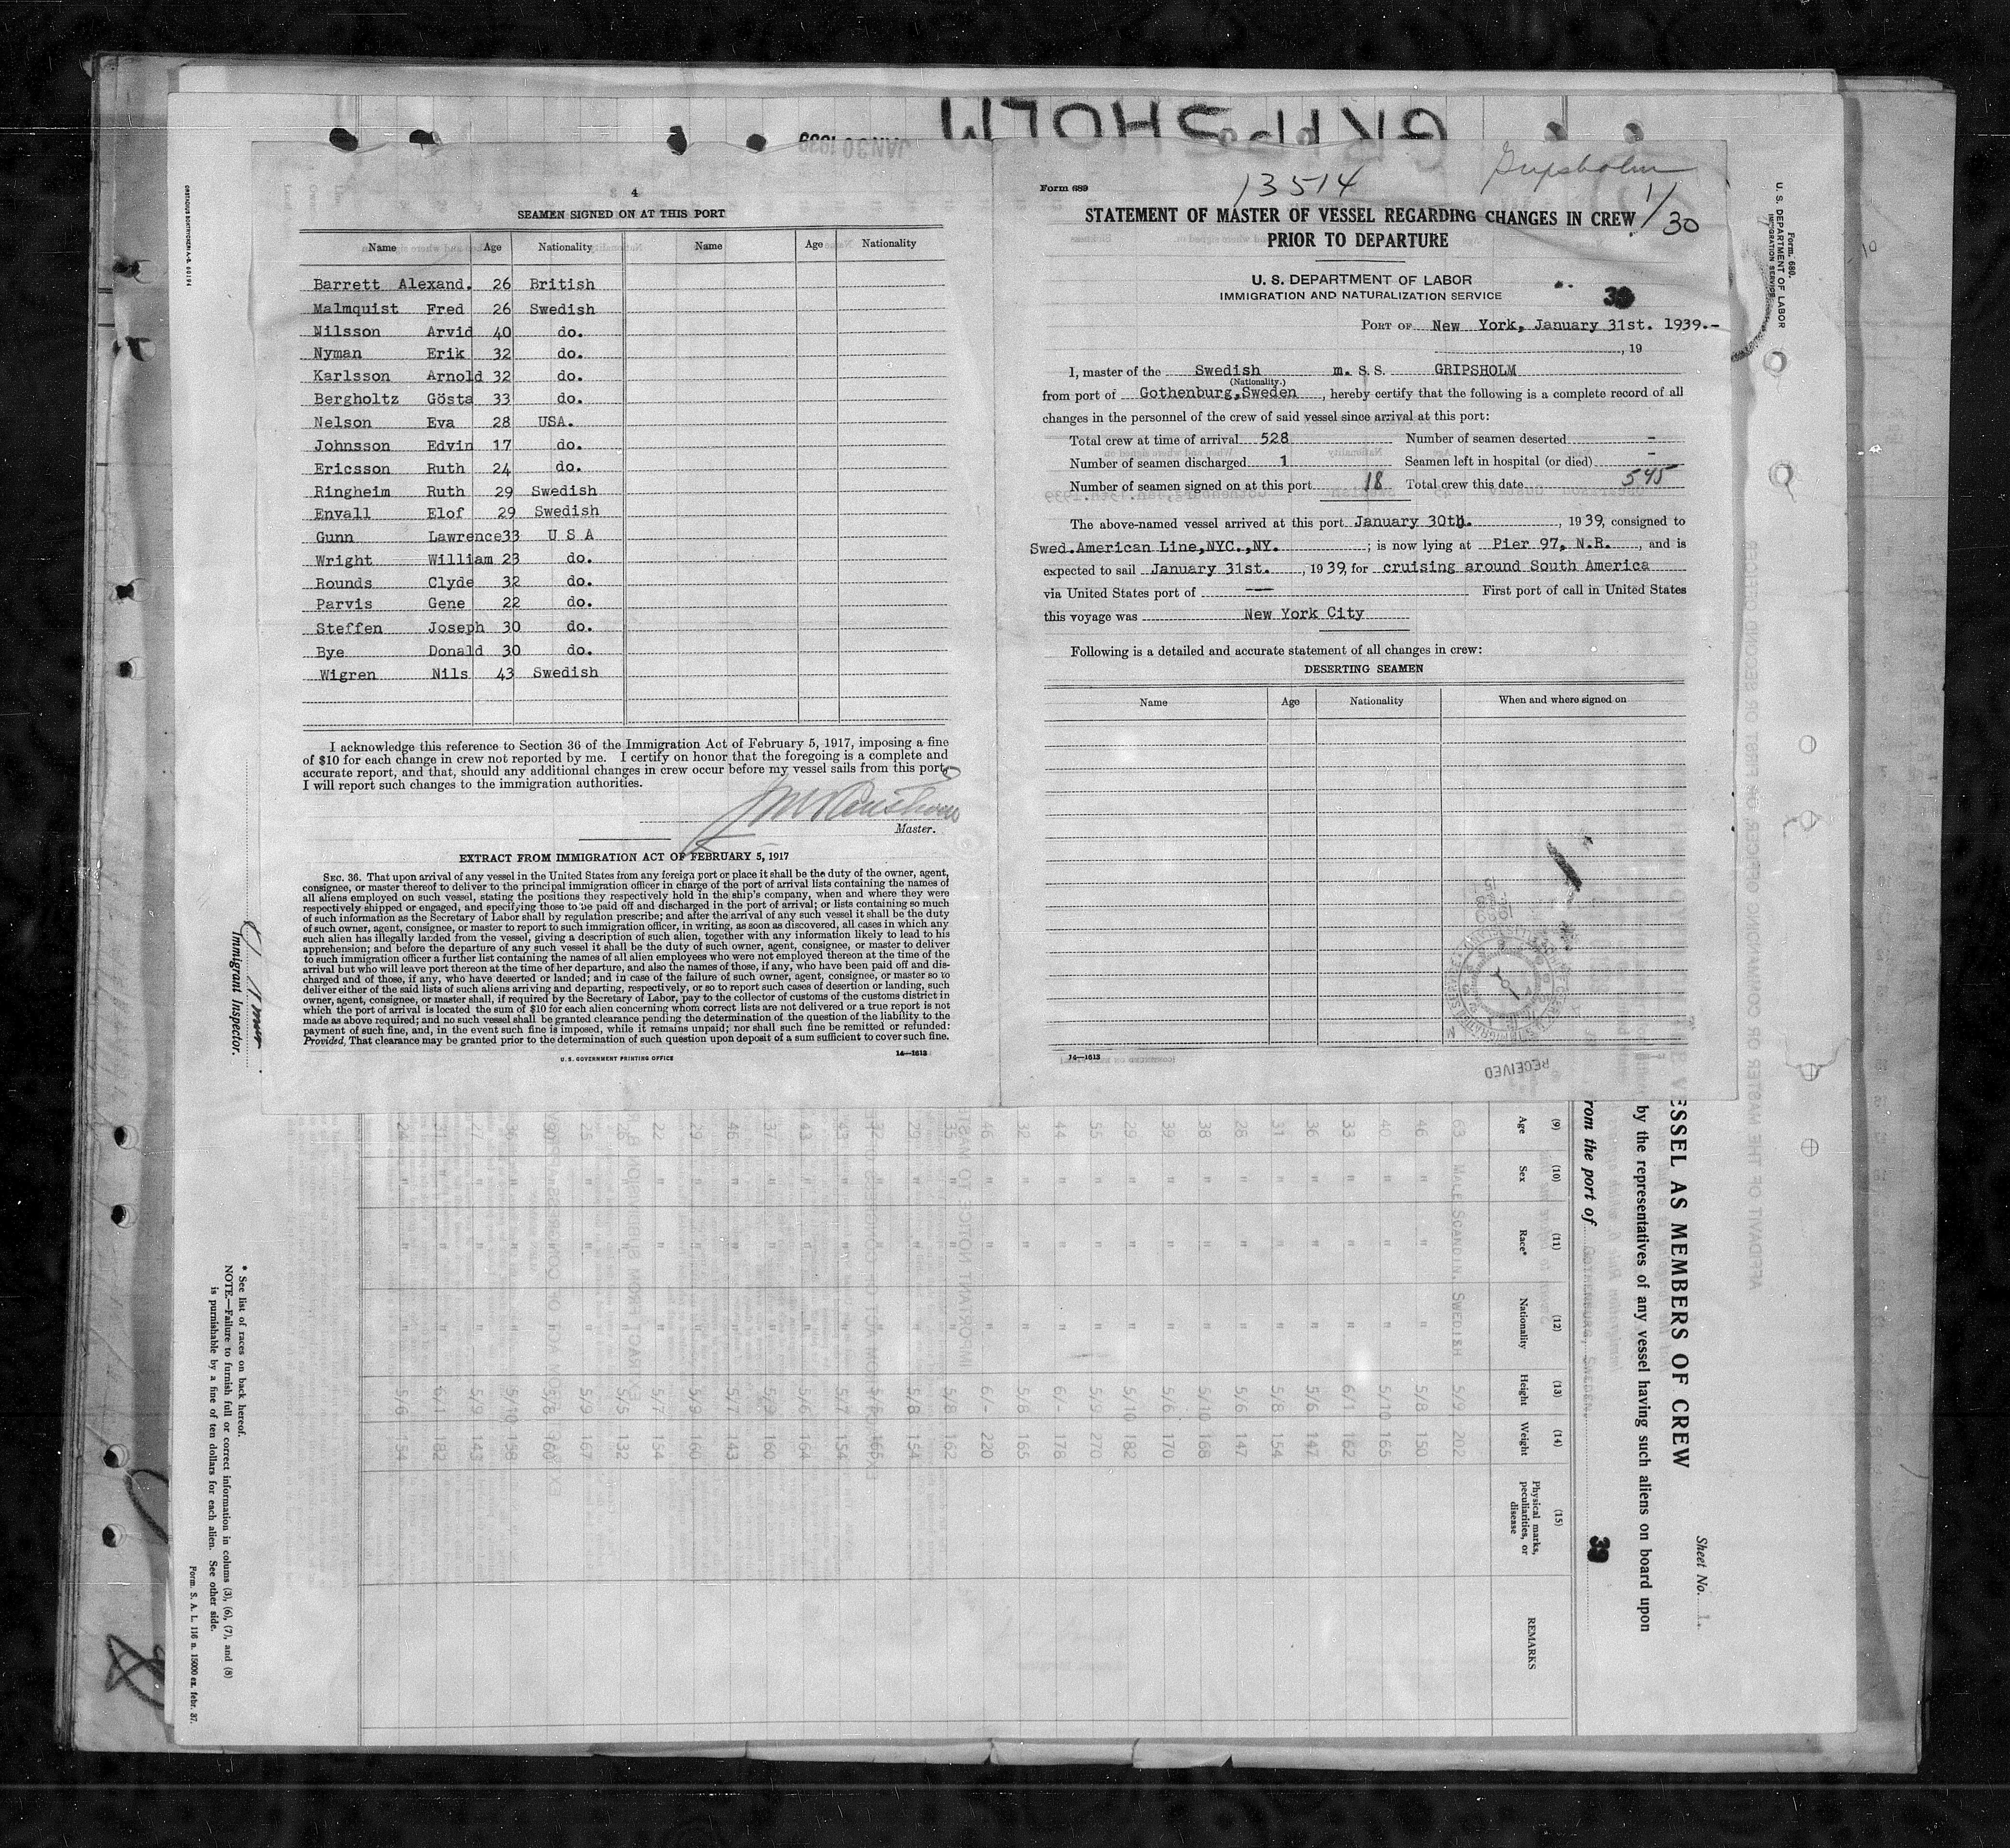 GRIPSHOLM
JAN 30 1939
4
SEAMEN SIGNED ON AT THIS PORT
Name Age Nationality Name Age Nationality
Barrett Alexand. 26 British
Malmquist Fred 26 Swedish
Nilsson Arvid 40 do.
Nyman Erik 32 do.
Karlsson Arnold 32 do.
Bergholtz Gösta 33 do.
Nelson Eva 28 USA.
Johnsson Edvin 17 do.
Ericsson Ruth 24 do.
Ringheim Ruth 29 Swedish
Envall Elof 29 Swedish
Gunn Lawrence 33 U S A
Wright William 23 do.
Rounds Clyde 32 do.
Parvis Gene 22 do.
Steffen Joseph 30 do.
Bye Donald 30 do.
Wigren Nils 43 Swedish
I acknowledge this reference to Section 36 of the Immigration Act of February 5, 1917, imposing a fine
of $10 for each change in crew not reported by me. I certify on honor that the foregoing is a complete and
accurate report, and that, should any additional changes in crew occur before my vessel sails from this port,
I will report such changes to the immigration authorities.
Master.
EXTRACT FROM IMMIGRATION ACT OF FEBRUARY 5, 1917
SEC. 36. That upon arrival of any vessel in the United States from any foreign port or place it shall be the duty of the owner, agent,
consignee, or master thereof to deliver to the principal immigration officer in charge of the port of arrival lists containing the names of
all aliens employed on such vessel, stating the positions they respectively hold in the ship's company, when and where they were
respectively shipped or engaged, and specifying those to be paid off and discharged in the port of arrival; or lists containing so much
of such information as the Secretary of Labor shall by regulation prescribe; and after the arrival of any such vessel it shall be the duty
of such owner, agent, consignee, or master to report to such immigration officer, in writing, as soon as discovered, all cases in which any
such alien has illegally landed from the vessel, giving a description of such alien, together with any information likely to lead to his
apprehension; and before the departure of any such vessel it shall be the duty of such owner, agent, consignee, or master to deliver
to such immigration officer a further list containing the names of all alien employees who were not employed thereon at the time of the
arrival but who will leave port thereon at the time of her departure, and also the names of those, if any, who have been paid off and dis-
charged and of those, if any, who have deserted or landed; and in case of the failure of such owner, agent, consignee, or master so to
deliver either of the said lists of such aliens arriving and departing, respectively, or so to report such cases of desertion or landing, such
owner, agent, consignee, or master shall, if required by the Secretary of Labor, pay to the collector of customs of the customs district in
which the port of arrival is located the sum of $10 for each alien concerning whom correct lists are not delivered or a true report is not
made as above required; and no such vessel shall be granted clearance pending the determination of the question of the liability to the
payment of such fine, and, in the event such fine is imposed, while it remains unpaid; nor shall such fine be remitted or refunded:
Provided, That clearance may be granted prior to the determination of such question upon deposit of a sum sufficient to cover such fine.
U. S. GOVERNMENT PRINTING OFFICE 14—1613
Form 689
13514
Gripsholm
1/30
STATEMENT OF MASTER OF VESSEL REGARDING CHANGES IN CREW
PRIOR TO DEPARTURE
U. S. DEPARTMENT OF LABOR
IMMIGRATION AND NATURALIZATION SERVICE
PORT OF New York, January 31st. 1939.-
, 19
I, master of the Swedish m. S. S. GRIPSHOLM
(Nationality.)
from port of Gothenburg,Sweden, hereby certify that the following is a complete record of all
changes in the personnel of the crew of said vessel since arrival at this port:
Total crew at time of arrival 528 Number of seamen deserted -
Number of seamen discharged 1 Seamen left in hospital (or died) -
Number of seamen signed on at this port 18 Total crew this date 545
The above-named vessel arrived at this port January 30th. , 1939, consigned to
Swed.American Line,NYC.,NY. ; is now lying at Pier 97, N.R. , and is
expected to sail January 31st. , 1939, for cruising around South America
via United States port of --- First port of call in United States
this voyage was New York City
Following is a detailed and accurate statement of all changes in crew:
DESERTING SEAMEN
Name Age Nationality When and where signed on
14—1613
RECEIVED
Form 680.
U. S. DEPARTMENT OF LABOR
IMMIGRATION SERVICE
ESSEL AS MEMBERS OF CREW
Sheet No. 1.
by the representatives of any vessel having such aliens on board upon
rom the port of GOTHENBURG, SWEDEN.
39
(9) (10) (11) (12) (13) (14) (15)
Age Sex Race* Nationality Height Weight Physical marks, peculiarities, or disease REMARKS
63 MALE SCANDIN. SWEDISH 5/9 202
46 " " " 5/8 150
40 " " " 5/10 165
33 " " " 6/1 162
36 " " " 5/6 147
31 " " " 5/8 154
28 " " " 5/6 147
38 " " " 5/10 168
39 " " " 5/6 170
29 " " " 5/10 182
55 " " " 5/9 270
44 " " " 6/- 178
32 " " " 5/8 165
46 " " " 6/- 220
Immigrant Inspector.
* See list of races on back hereof.
NOTE.—Failure to furnish full or correct information in colums (3), (6), (7), and (8)
is punishable by a fine of ten dollars for each alien. See other side.
Form. S. A. L. 116 n. 15000 ex. febr. 37.